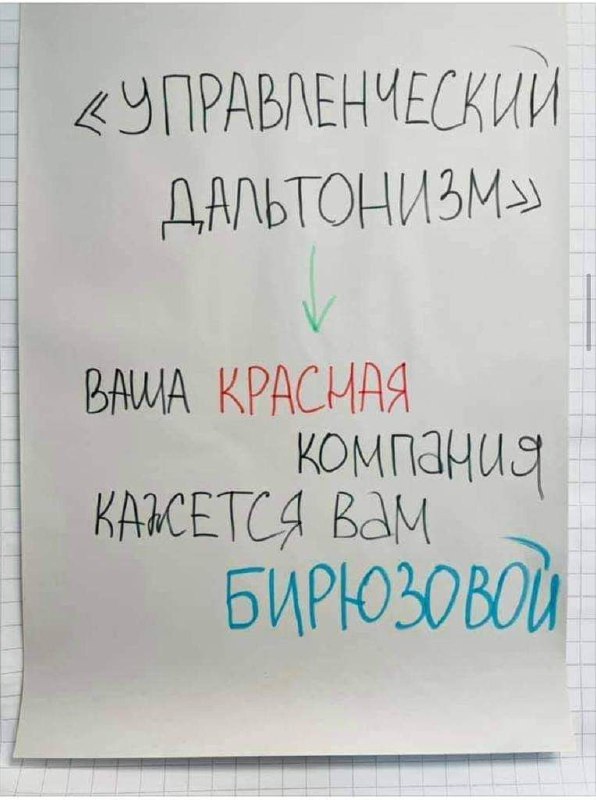 «УПРАВЛЕНЧЕСКИЙ
ДАЛЬТОНИЗМ»
ВАША КРАСНАЯ
КОМПАНИЯ
КАЖЕТСЯ ВАМ
БИРЮЗОВОЙ